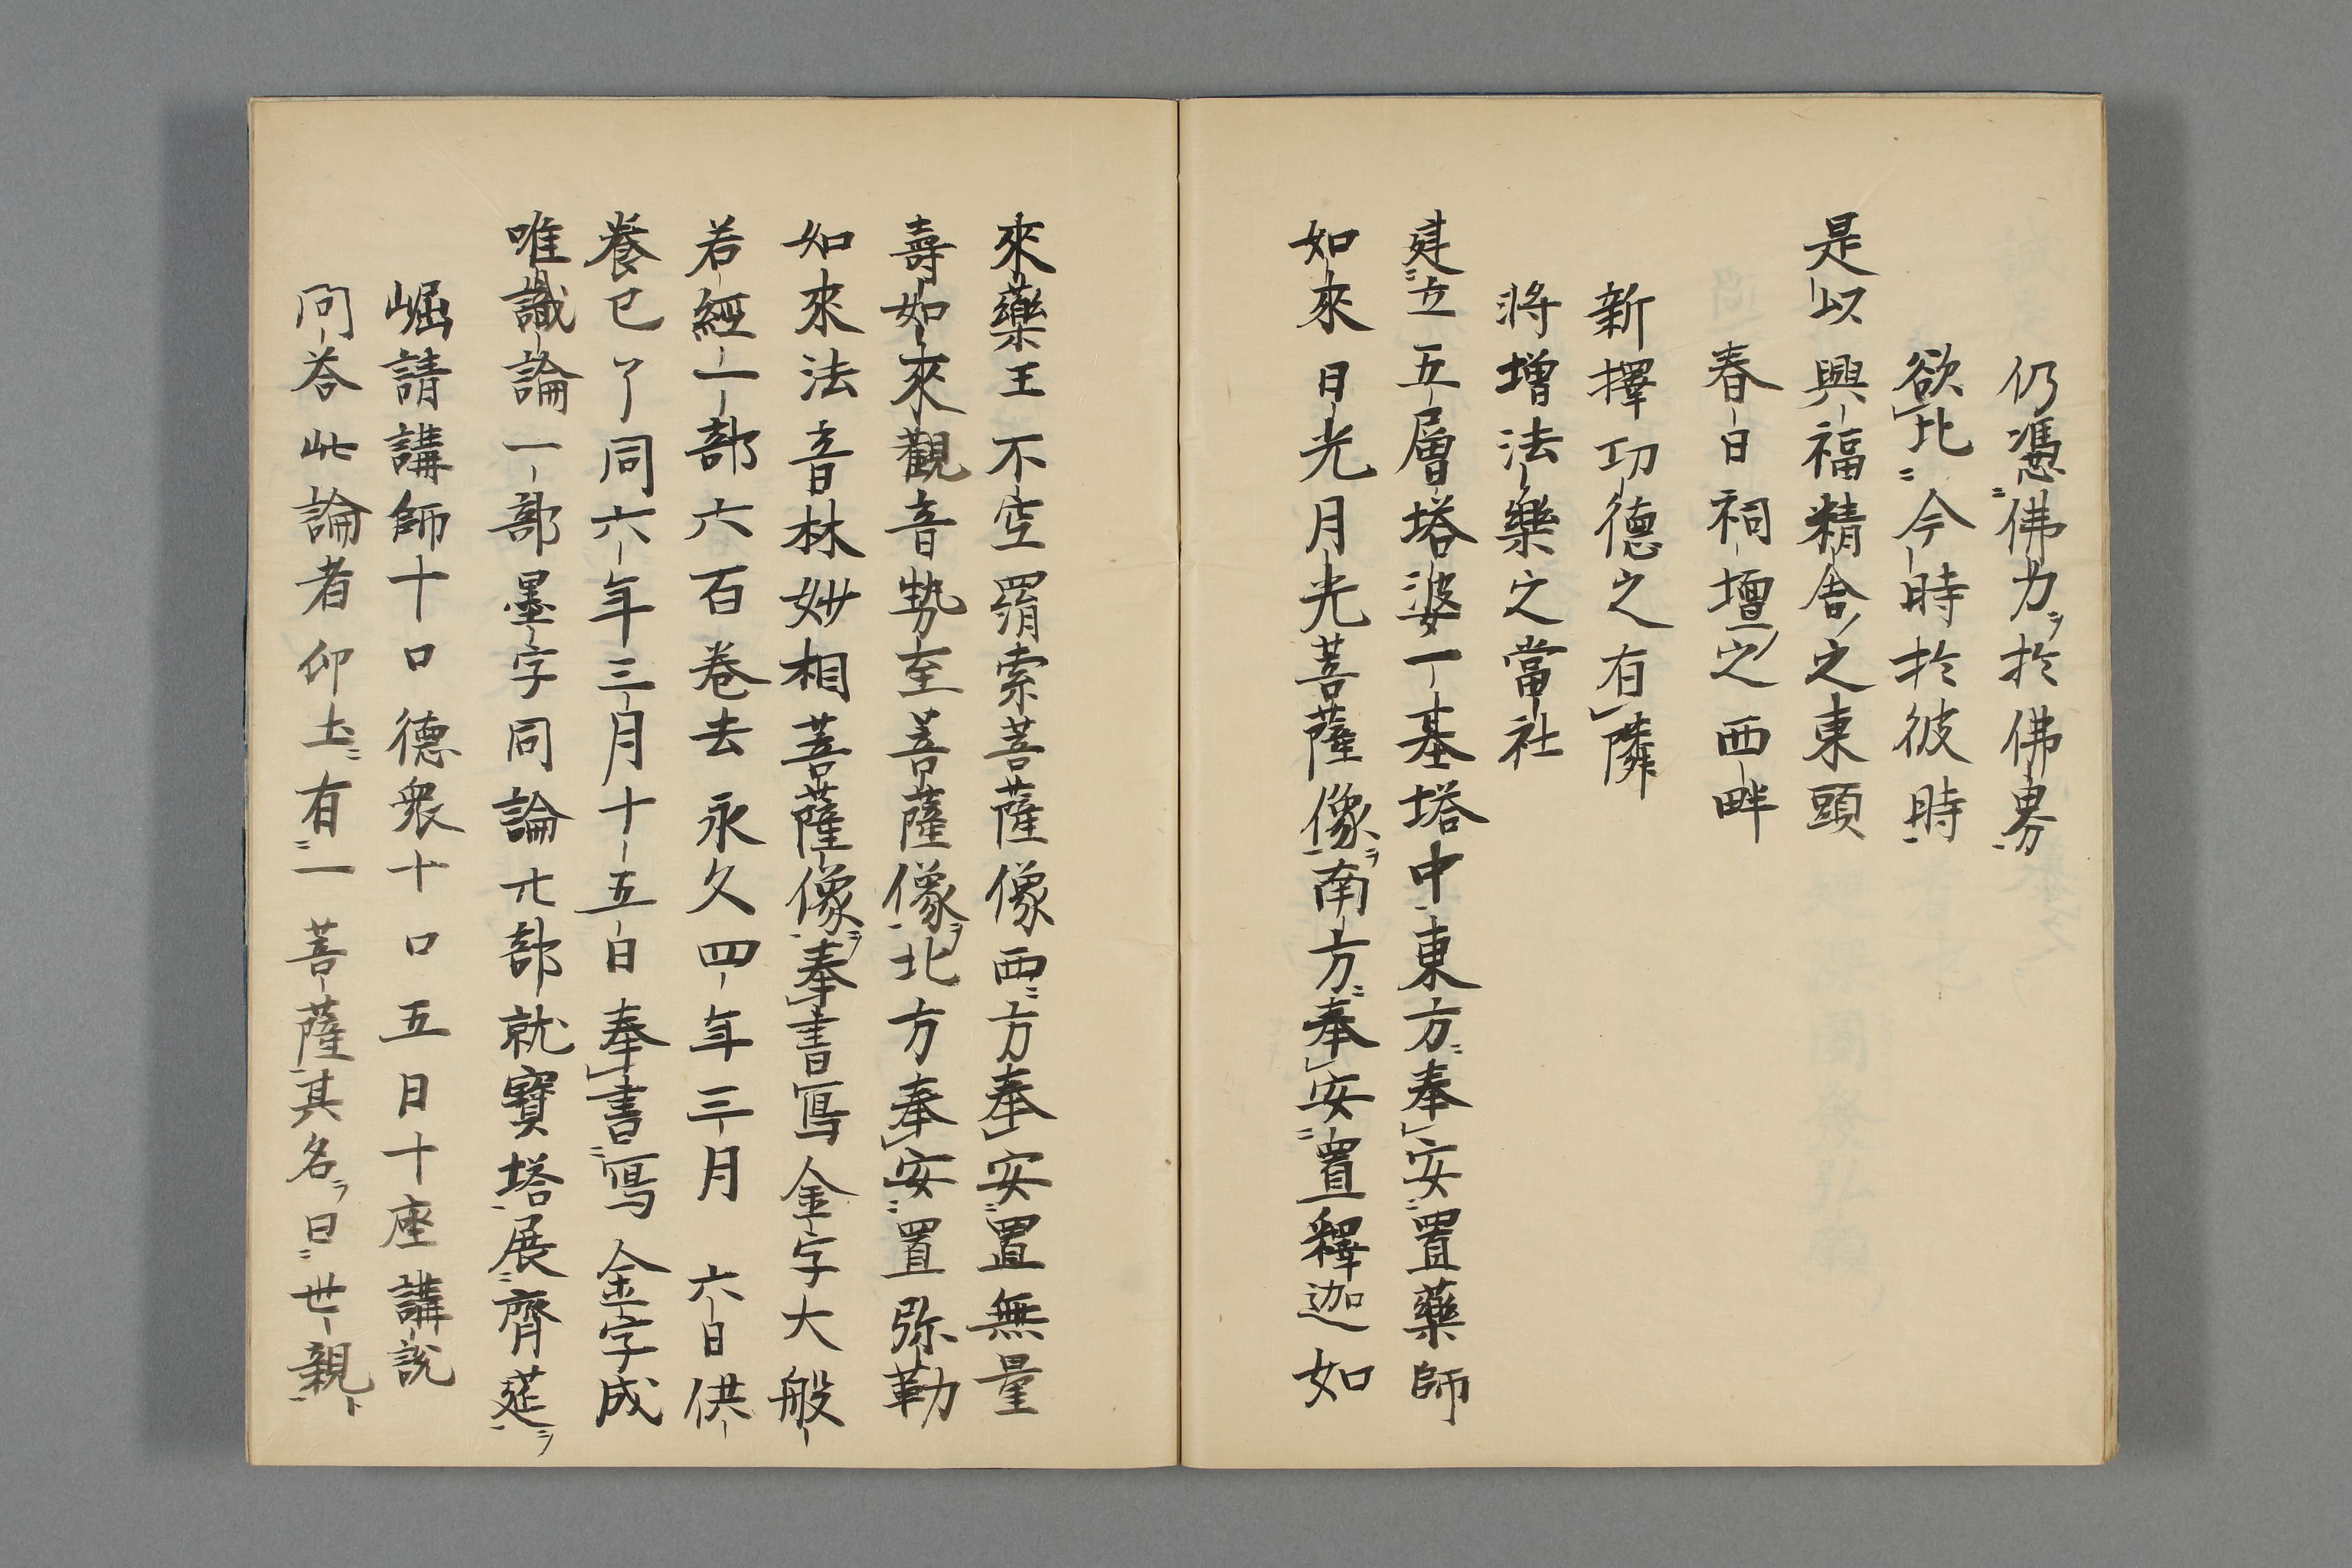 仍憑佛力ヲ於佛界
欲比今時於彼時
是以興福精舎之東頭
春日祠壇之西畔
新擇功德之有隣
将增法樂之當社
建立五層塔婆一基塔中東方奉安置藥師
如來日光月光菩薩像ヲ南方奉安置釋迦如
來藥王不空羂索菩薩像西方奉安置無量
壽如來觀音勢至菩薩像ヲ北方奉安置弥勒
如來法音林妙相菩薩像ヲ奉書寫金字大般
若經一部六百卷去永久四年三月六日供
養已了同六年三月十五日奉書寫金字成
唯識論一部墨字同論部就寶塔展齊莚ヲ
崛請講師十口德衆十口五日十座講説
問荅此論者仰土有一菩薩其名ヲ曰世親ト